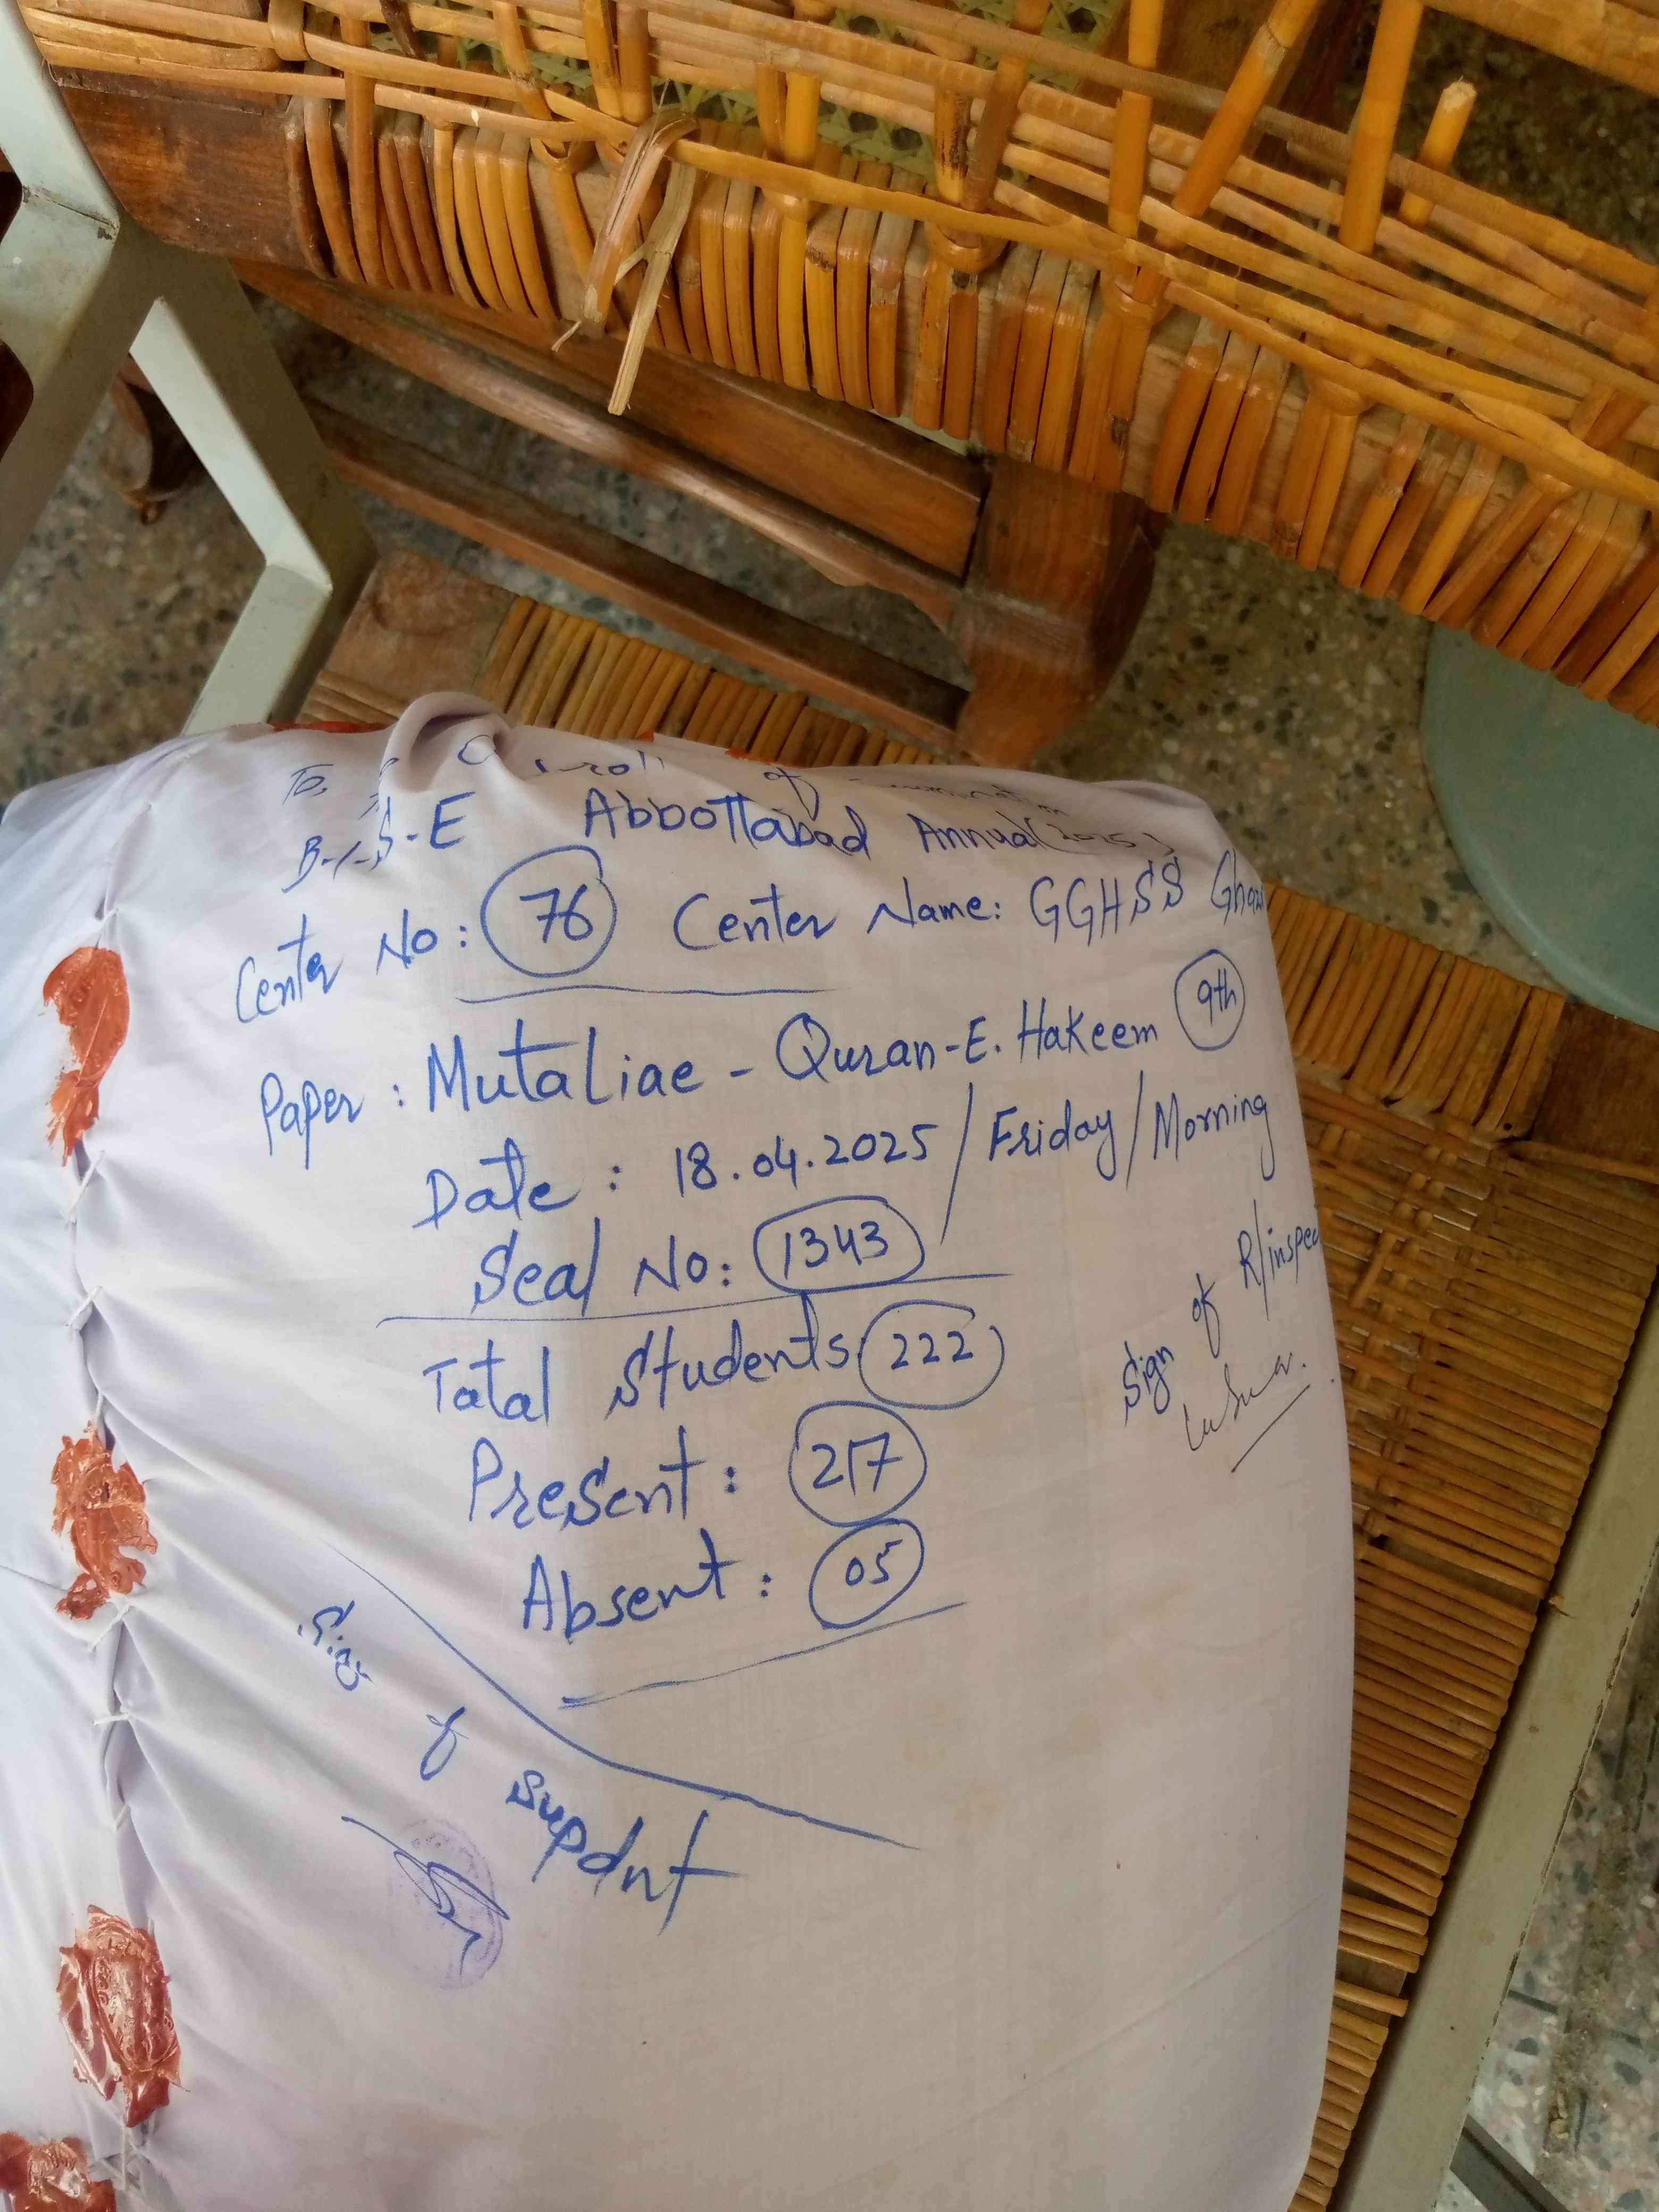 To,
of
B-I-S-E Abbottabad Annual (2025)
Center No: 76 Center Name: GGHSS Ghazi
Paper: Mutaliae - Quran-E. Hakeem 9th
Date: 18.04.2025 / Friday / Morning
Seal No: 1343
Total Students 222
Present: 217
Absent: 05
Sign of R/inspec
Sign of Supdnt